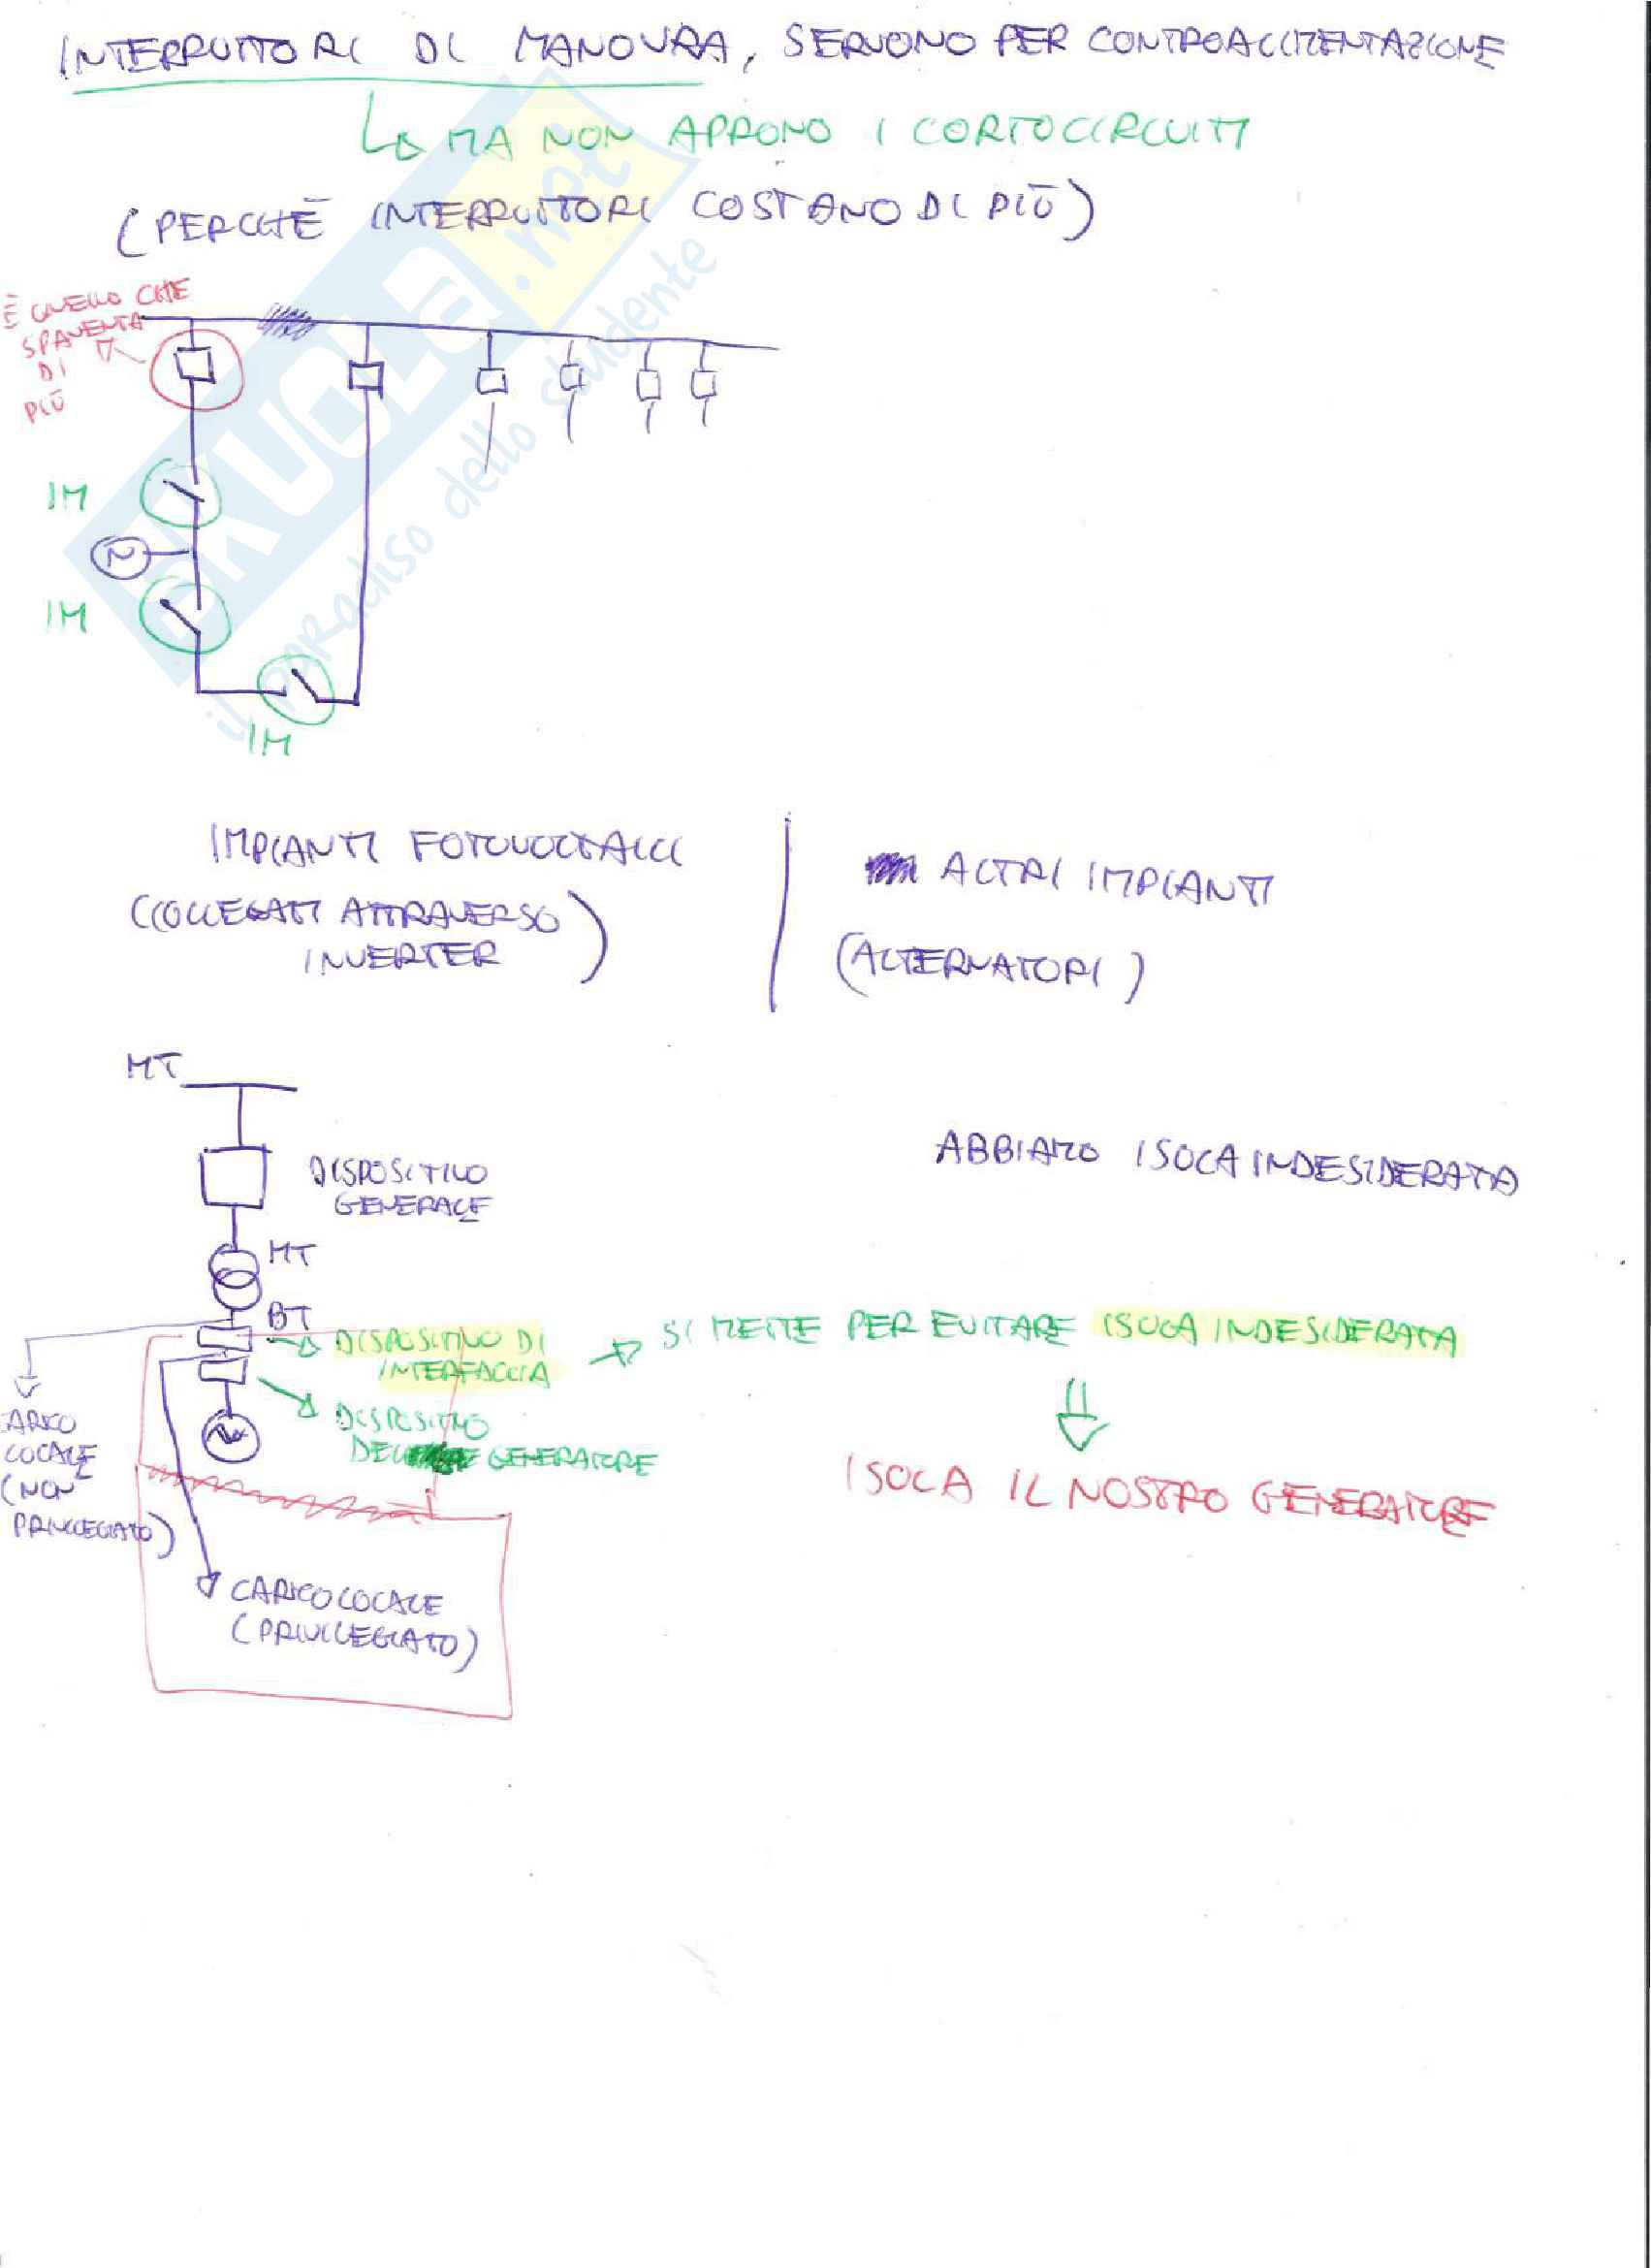 INTERRUTTORI DI MANOVRA, SERVONO PER CONTROALIMENTAZIONE
MA NON APRONO I CORTOCIRCUITI
(PERCHÈ INTERRUTTORI COSTANO DI PIÙ)
È QUELLO CHE
SPAVENTA
DI
PIÙ
IM
IM
IM
SKUOLA.net
il paradiso dello studente
IMPIANTI FOTOVOLTAICI
(COLLEGATI ATTRAVERSO
INVERTER)
ALTRI IMPIANTI
(ALTERNATORI)
MT
DISPOSITIVO
GENERALE
ABBIAMO ISOLA INDESIDERATA
MT
BT
DISPOSITIVO DI
INTERFACCIA
SI METTE PER EVITARE ISOLA INDESIDERATA
DISPOSITIVO
DEL GENERATORE
ISOLA IL NOSTRO GENERATORE
CARICO
LOCALE
(NON
PRIVILEGIATO)
CARICO LOCALE
(PRIVILEGIATO)